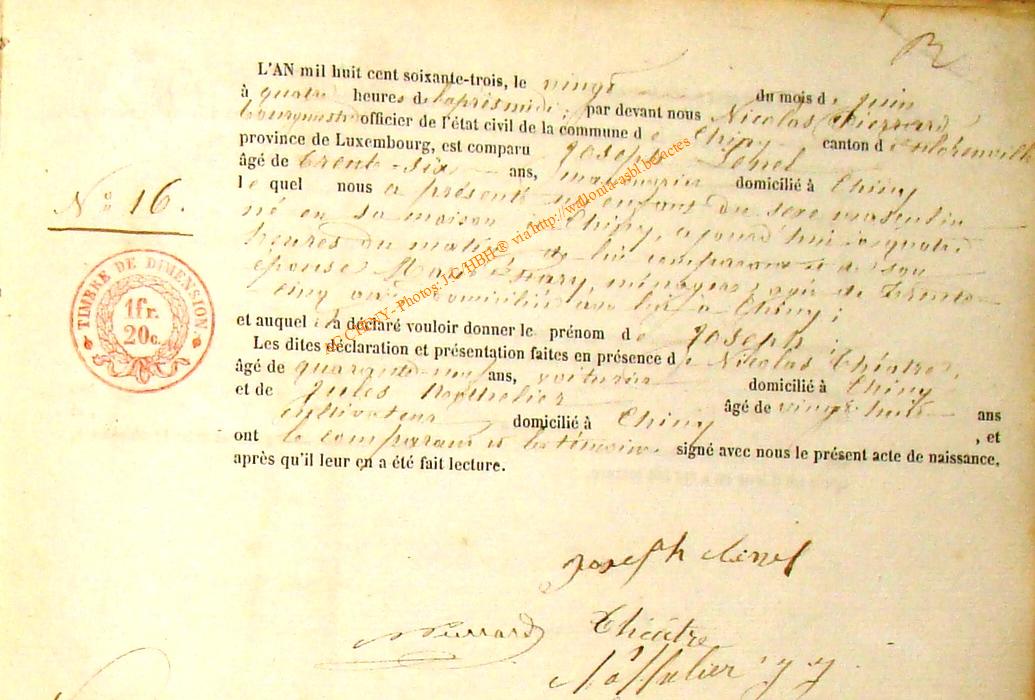 L'AN mil huit cent soixante-trois, le vingt du mois de juin
à quatre heures de l'après midi; par devant nous Nicolas Pierrard
bourgmestre officier de l'état civil de la commune de Chiny canton de Florenville
province de Luxembourg, est comparu Joseph
âgé de trente-six ans, domicilié à Chiny
lequel nous a présenté un enfant du sexe masculin
né en sa maison à Chiny, aujourd'hui à quatre
heures du matin de lui comparant et de son
épouse ménagère, âgée de trente
cinq ans domiciliée avec lui à Chiny;
et auquel il a déclaré vouloir donner le prénom de Joseph;
Les dites déclaration et présentation faites en présence de Nicolas Théatre,
âgé de quarante-neuf ans, voiturier domicilié à Chiny
et de Jules âgé de vingt huit ans
cultivateur domicilié à Chiny , et
ont le comparant et les témoins signé avec nous le présent acte de naissance,
après qu'il leur en a été fait lecture.
No 16.
TIMBRE DE DIMENSION
1fr.
20c.
CHINY - Photos: J-C/HBH ® via http://wallonia-asbl.be/actes
Joseph
Pierrard Théatre